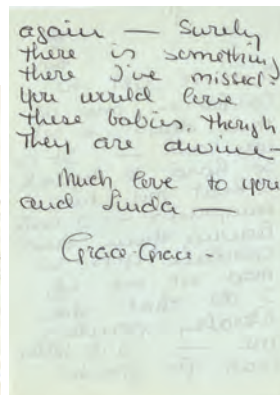 again — Surely
there is something
there I've missed.
You would love
these babies, though
They are divine —
Much love to you
and Linda —
Grace-Grace -